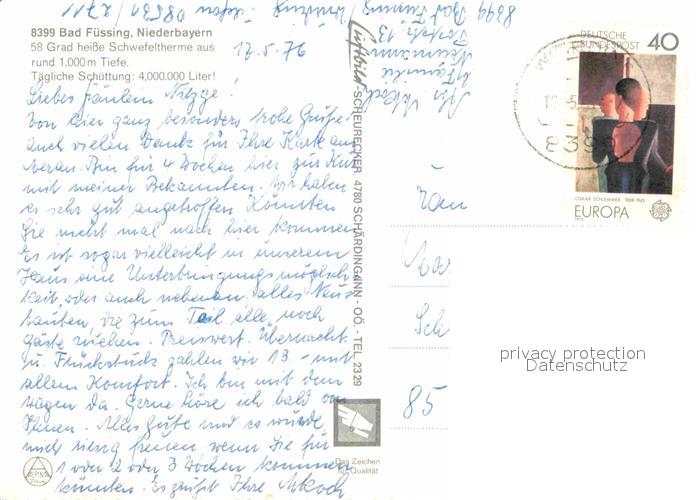 8399 Bad Füssing, Niederbayern
58 Grad heiße Schwefeltherme aus
rund 1.000 m Tiefe.
Tägliche Schüttung: 4,000.000 Liter!
17.5.76
Liebes Fräulein
Von hier ganz besonders frohe Grüße
auch vielen Dank für Ihre Karte aus
Meran. Bin für 4 Wochen hier zur Kur
mit meiner Bekannten. Wir haben
es sehr gut angetroffen. Könnten
Sie nicht mal nach hier kommen
Es ist sogar vielleicht in unserem
Haus eine Unterbringungsmöglich-
keit, oder auch nebenan. alles Neu-
bauten, die zum Teil alle noch
Gäste suchen. Preiswert. Übernacht.
u. Frühstück zahlen wir 13 - mit
allem Komfort. Ich bin mit dem
Wagen da. Gerne höre ich bald von
Ihnen. Alles Gute und es würde
mich riesig freuen wenn Sie für
1 oder 2 oder 3 Wochen kommen
könnten. Es grüßt Ihre
ALPINA
Druck
8399 Bad Füssing
Telefon 08531/2711
Luftbild-SCHEURECKER, 4780 SCHÄRDING/INN - OÖ. - TEL. 2329
Das Zeichen
für Qualität
DEUTSCHE
BUNDESPOST 40
OSKAR SCHLEMMER 1888-1943
EUROPA
8399
Sch
85
privacy protection
Datenschutz